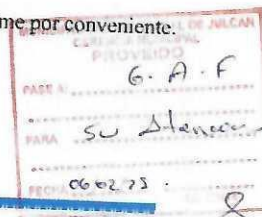 me por conveniente.
DE JULCAN
PROVEIDO
PASE A: G. A. F
PARA Su Atención
FECHA 060225.